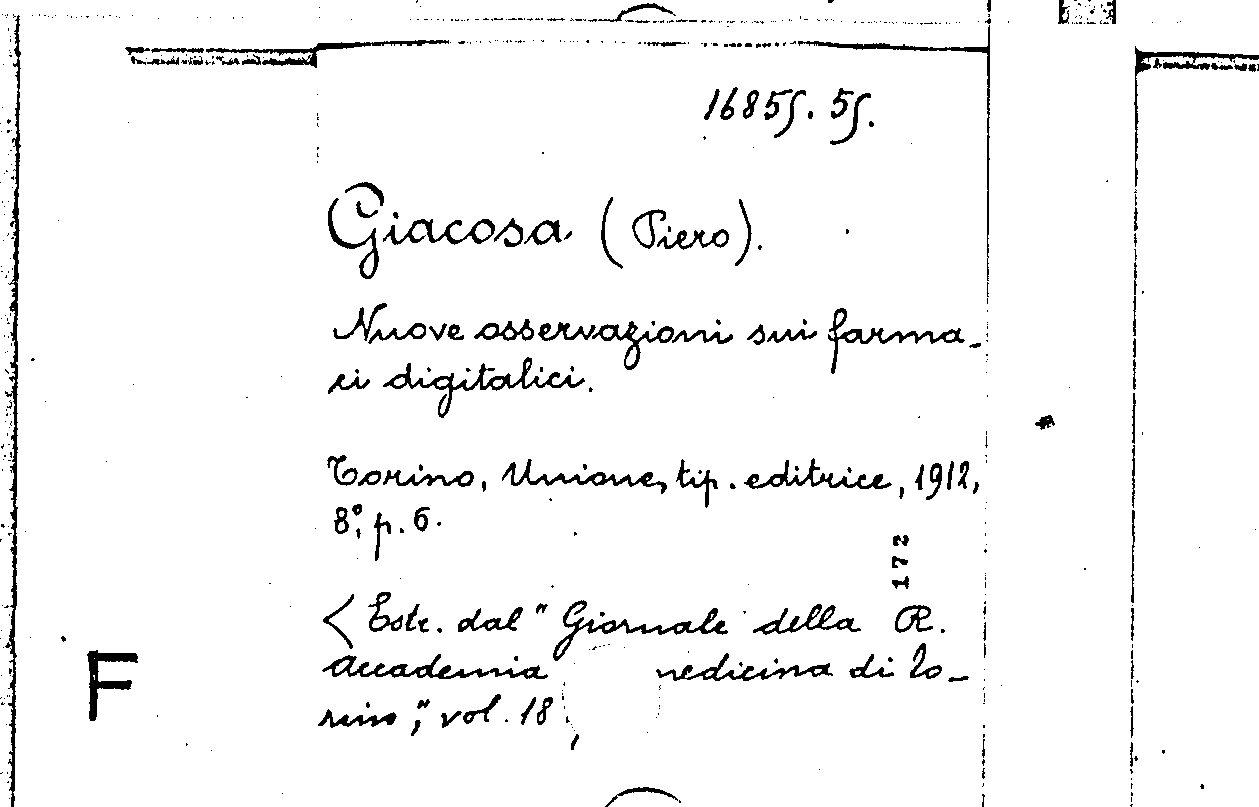 1685ʃ. 5ʃ.
Giacosa (Piero).
Nuove osservazioni sui farma-
ci digitalici.
Torino, Unione, tip. editrice, 1912,
8°, p. 6.
172
< Estr. dal "Giornale della R.
Accademia medicina di To-
rino", vol. 18
F